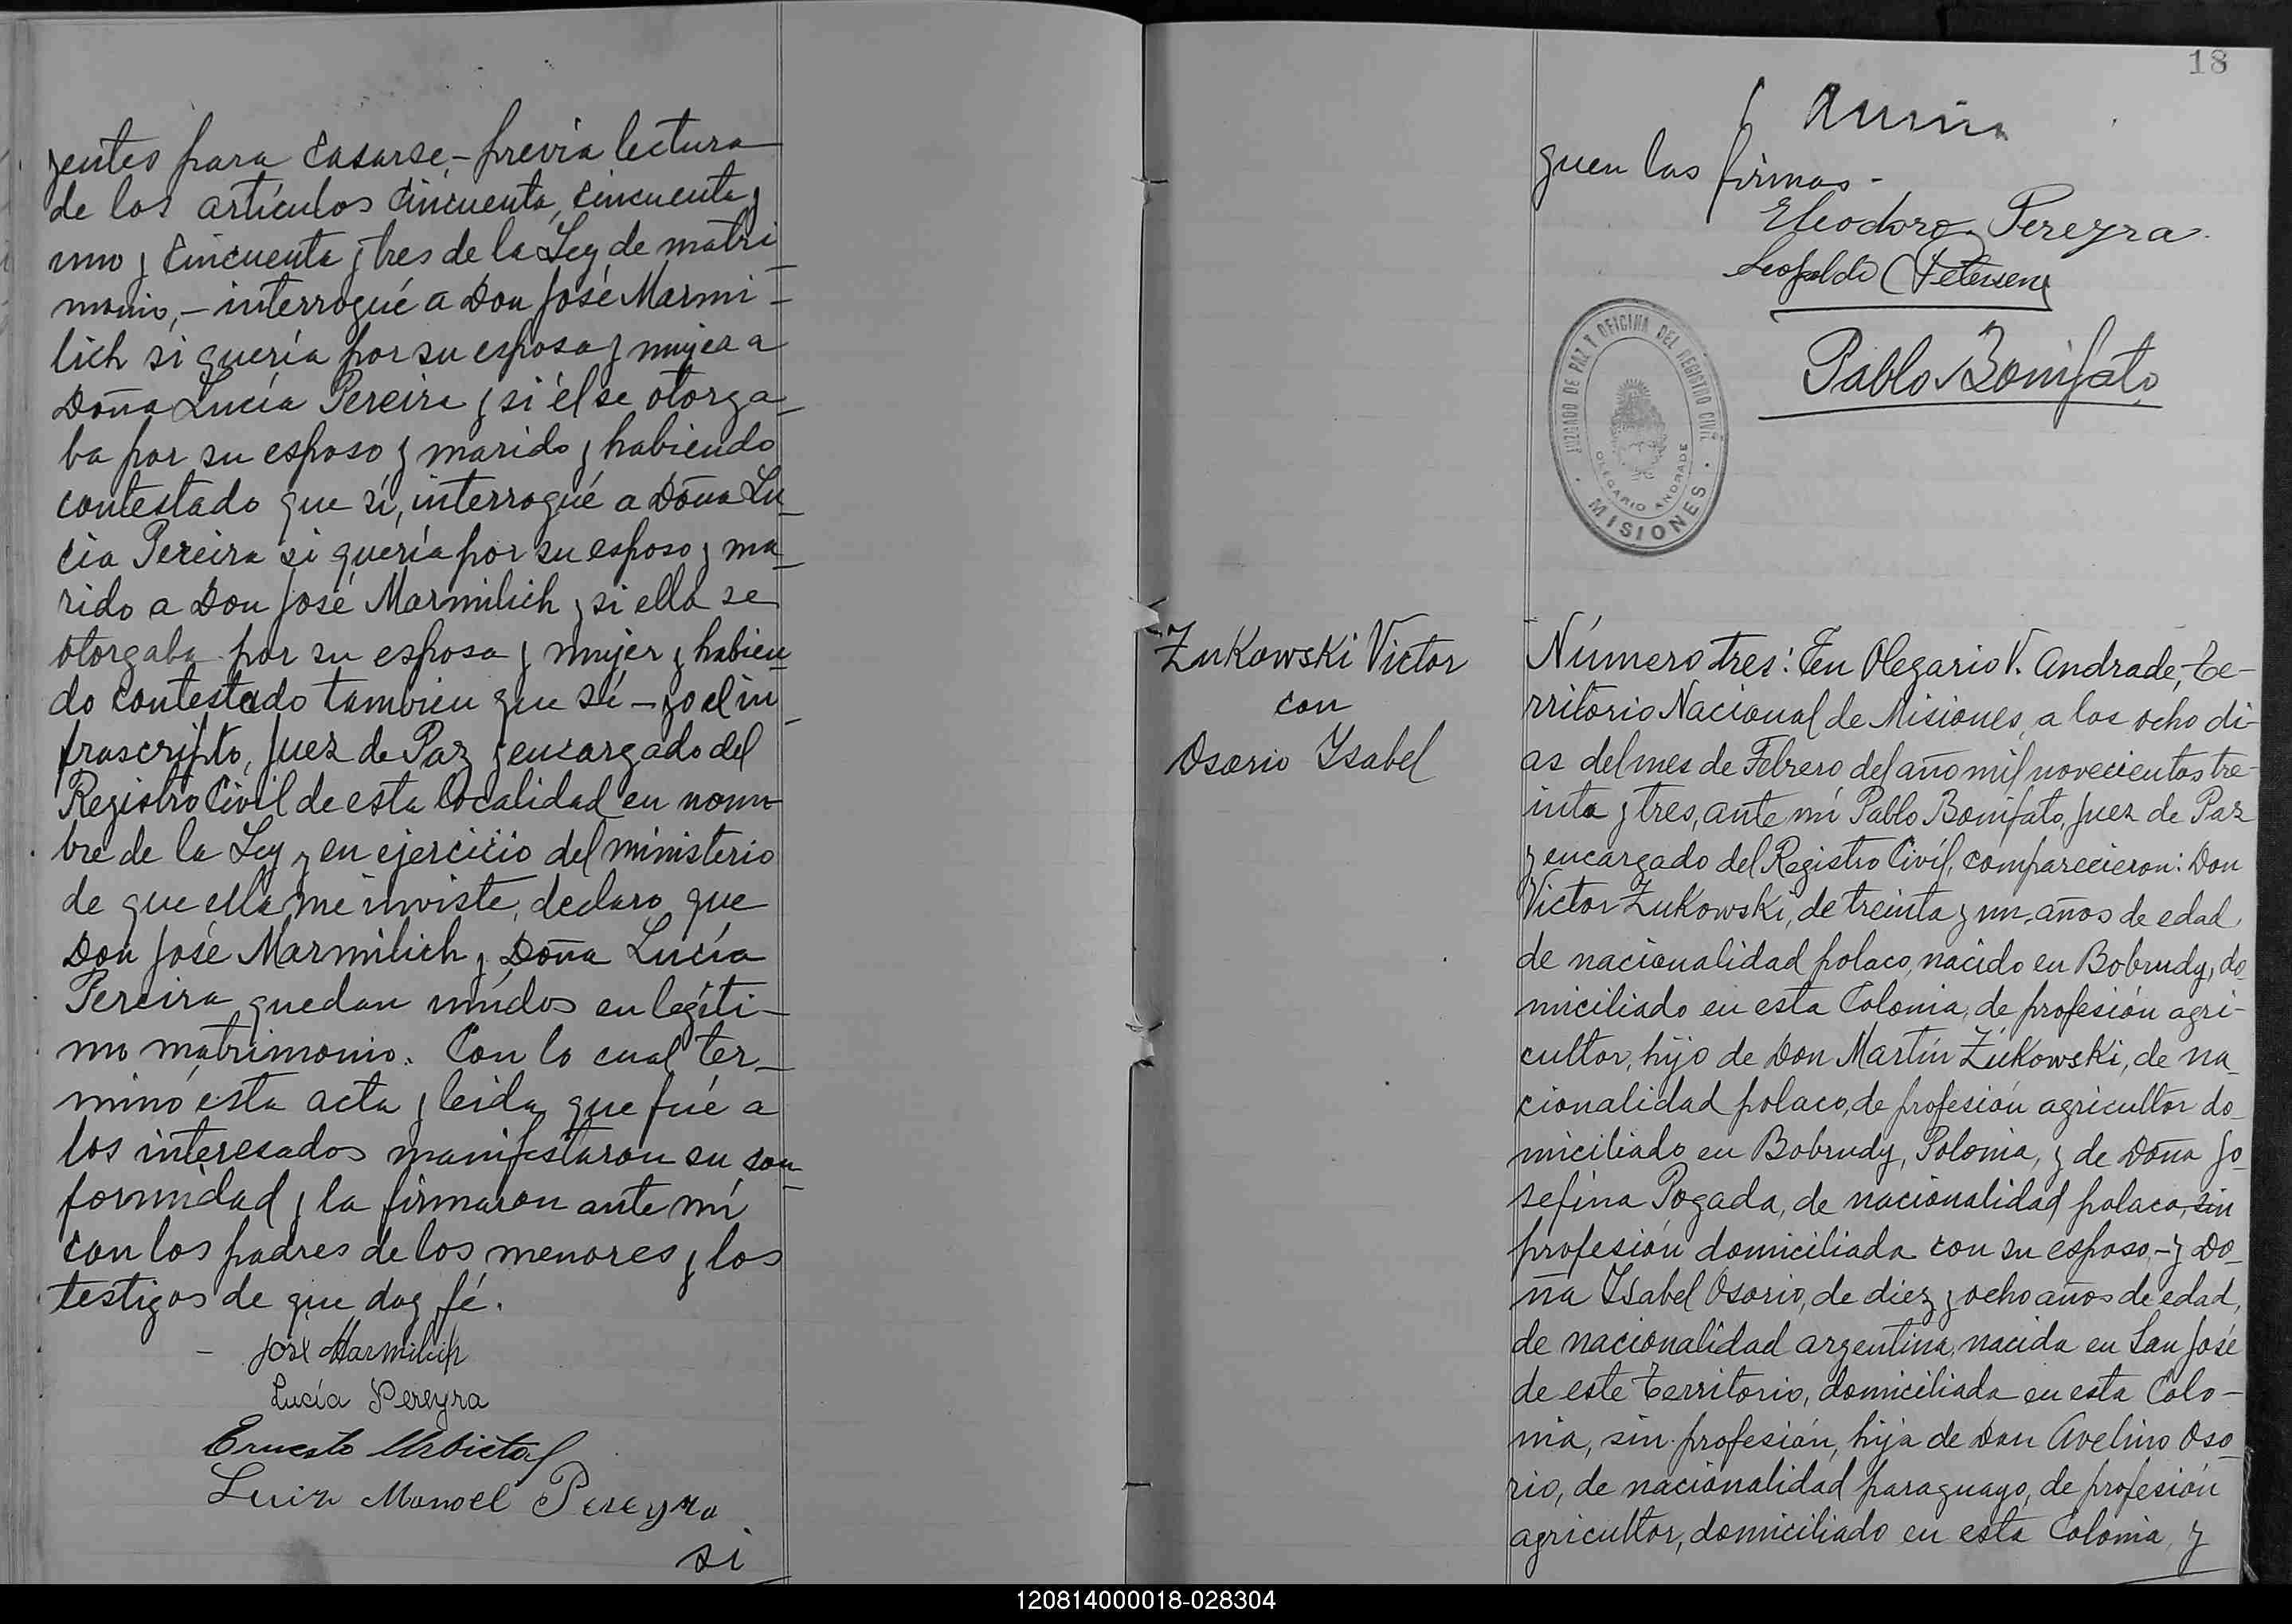 gentes para casarse,- previa lectura
de los artículos cincuenta, cincuenta y
uno y cincuenta y tres de la Ley de matri
monio,- interrogué a Don José Marmi-
lich si quería por su esposa y mujer a
Doña Lucía Pereira y si él se otorga-
ba por su esposo y marido y habiendo
contestado que sí, interrogué a Doña Lu-
cía Pereira si quería por su esposo y ma-
rido a Don José Marmilich y si ella se
otorgaba por su esposa y mujer y habien-
do contestado tambien que sí - yo el in-
frascripto, Juez de Paz y encargado del
Registro Civil de esta localidad en nom-
bre de la Ley y en ejercicio del ministerio
de que ella me inviste, declaro que
Don José Marmilich y Doña Lucía
Pereira quedan unidos en legíti-
mo matrimonio. Con lo cual ter-
minó esta acta y leida que fué a
los interesados manifestaron su con-
formidad y la firmaron ante mí
con los padres de los menores y los
testigos de que doy fé.
José Marmilich
Lucía Pereyra
Ernesto
Luiz Manoel Pereyra
si
18
guen las firmas-
Eleodoro Pereyra
Leopoldo Petersen
Pablo Bonifato
JUZGADO DE PAZ Y OFICINA DEL REGISTRO CIVIL
OLEGARIO ANDRADE
MISIONES
Zukowski Victor
con
Osorio Ysabel
Número tres: En Olegario V. Andrade, te-
rritorio Nacional de Misiones, a los ocho di-
as del mes de Febrero del año mil novecientos tre-
inta y tres, ante mí Pablo Bonifato, Juez de Paz
y encargado del Registro Civil, comparecieron: Don
Victor Zukowski, de treinta y un años de edad,
de nacionalidad polaco, nacido en Bobrudy, do
miciliado en esta Colonia, de profesión agri-
cultor, hijo de Don Martín Zukowski, de na
cionalidad polaco, de profesión agricultor do-
miciliado en Bobrudy, Polonia, y de Doña Jo-
sefina Pogada, de nacionalidad polaca, sin
profesión domiciliada con su esposo - y Do-
ña Ysabel Osorio, de diez y ocho años de edad,
de nacionalidad argentina, nacida en San José
de este territorio, domiciliada en esta Colo-
nia, sin profesión, hija de Don Avelino Oso
rio, de nacionalidad paraguayo, de profesión
agricultor, domiciliado en esta Colonia, y
120814000018-028304